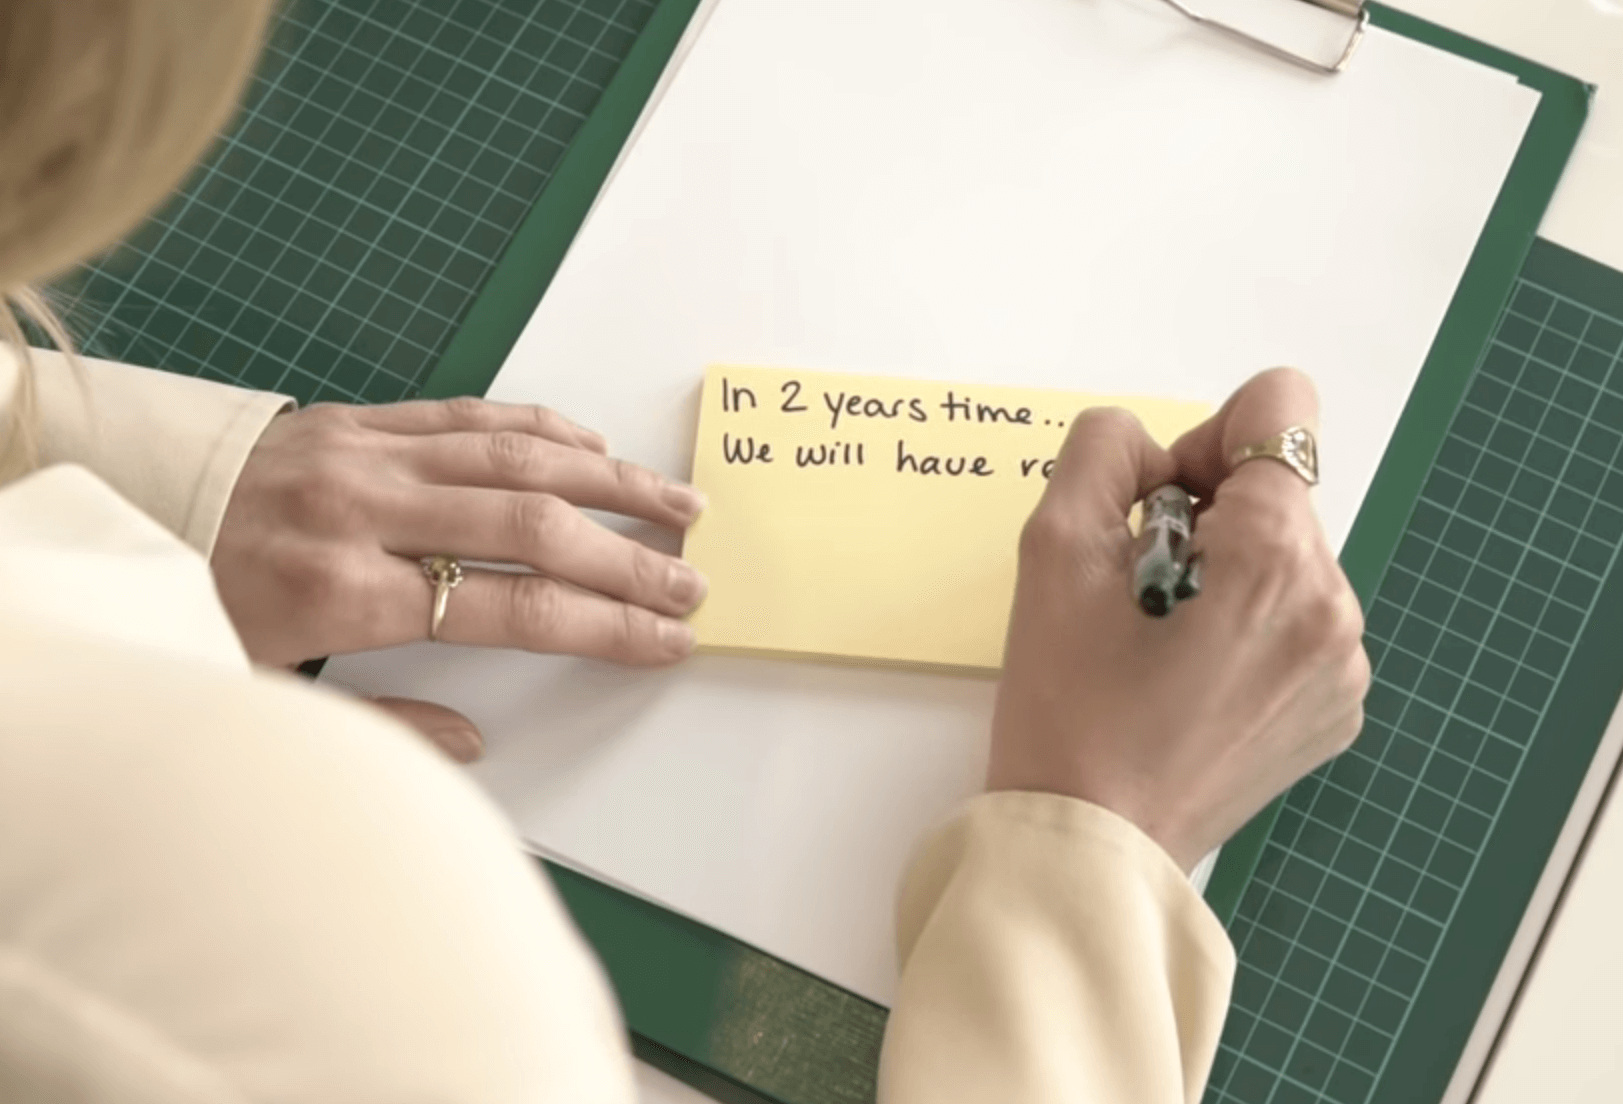 In 2 years time..
We will have